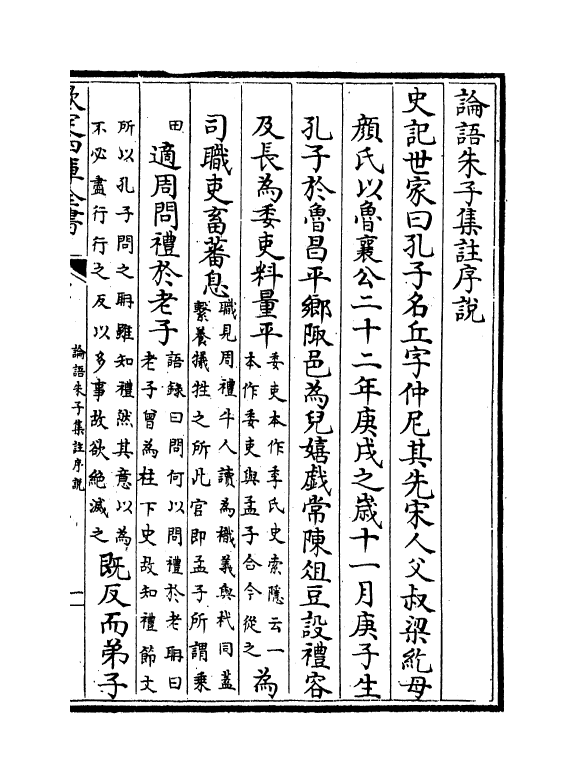 論語朱子集註序說
史記世家曰孔子名丘字仲尼其先宋人父叔梁紇母
顏氏以魯襄公二十二年庚戌之歲十一月庚子生
孔子於魯昌平鄉陬邑為兒嬉戲常陳俎豆設禮容
及長為委吏料量平
委吏本作季氏史索隱云一
本作委吏與孟子合今從之
為
司職吏畜蕃息
職見周禮牛人讀為樴義與杙同蓋
繫養犧牲之所此官即孟子所謂乘
田
適周問禮於老子
語錄曰問何以問禮於老聃曰
老子曾為柱下史故知禮節文
所以孔子問之聃雖知禮然其意以為
不必盡行行之反以多事故欲絕滅之
既反而弟子
欽定四庫全書
論語朱子集註序說
一